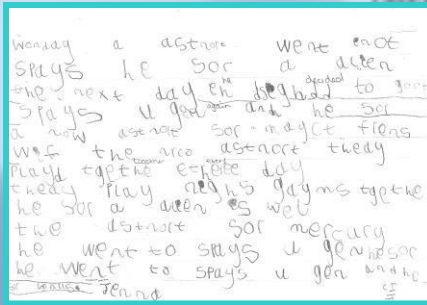 wonday a astnor went enot
spays he sor a alien
the next day he desighd decided to gow
spays u gen again and he sor
a now astnort sor mayct frens
wif the nroo astnort thedy
playd tgethe together etheite day
thedy play nighs gayms tgethe
he sor a alien es wel
the astnort sor mercury
he went to spays u gen he sor
he went to spays u gen and he
sor venuse Jenna